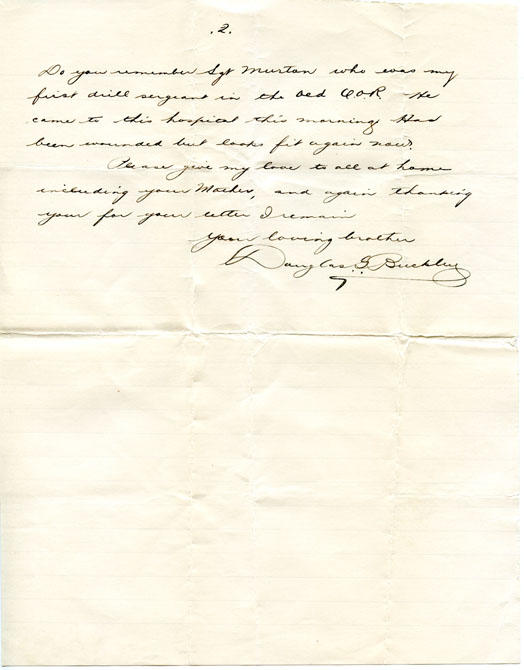 .2.
Do you remember Sgt Murton who was my
first drill sergeant in the old Q.O.R. He
came to this hospital this morning. Has
been wounded but looks fit again now.
Please give my love to all at home
including your Mother, and again thanking
your for your letter I remain
Your loving brother
Douglas G. Buckley